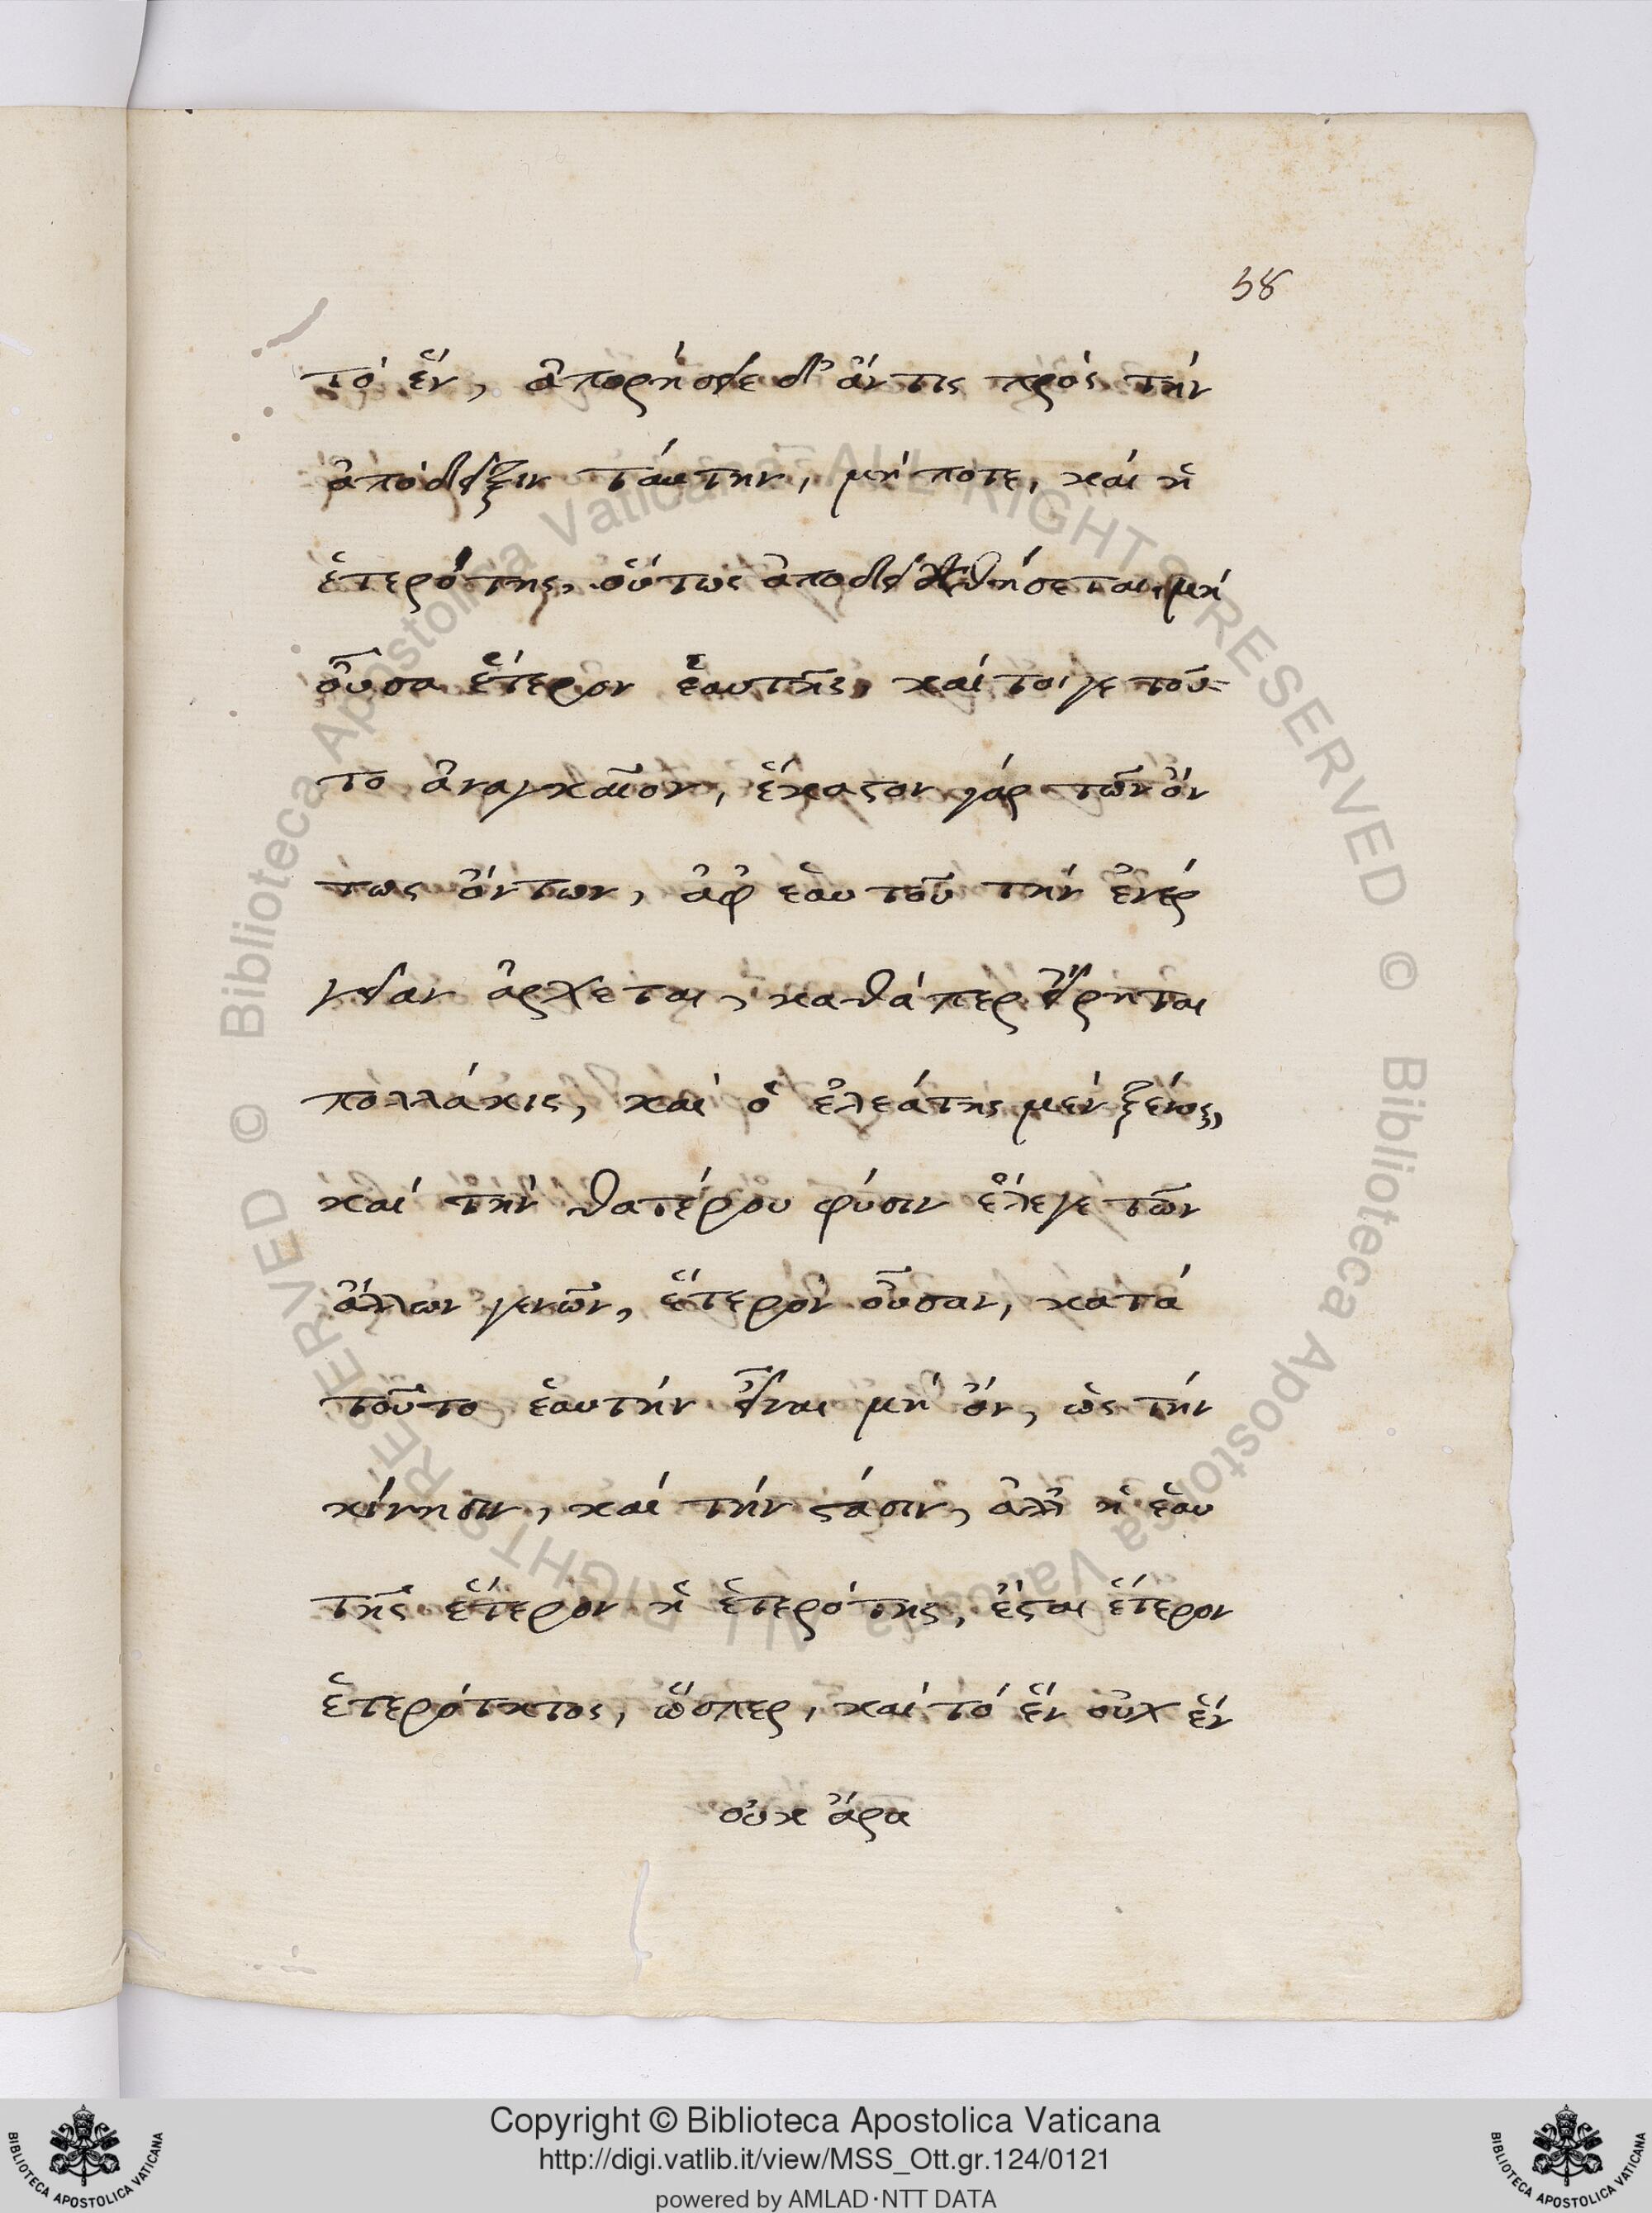 58
τὸ ἕν, ἀπορήσειε δ' ἄν τις πρὸς τὴν
ἀπόδειξιν ταύτην, μήποτε, καὶ ἡ
ἑτερότης, οὕτως ἀποδειχθήσεται, μὴ
οὖσα ἕτερον ἑαυτῆς, καί τοι γε τοῦ-
το ἀναγκαῖον, ἕκαστον γὰρ τῶν ὄν
τως ὄντων, ἀφ ἑαυτοῦ τὴν ἐνέρ
γειαν ἄρχεται, καθάπερ εἴρηται
πολλάκις, καὶ ὁ ἐλεάτης μὲν ξένος,
καὶ τὴν θατέρου φύσιν ἔλεγε τῶν
ἄλλων γενῶν, ἕτερον οὖσαν, κατὰ
τοῦτο ἑαυτὴν εἶναι μὴ ὄν, ὡς τὴν
κίνησιν, καὶ τὴν στάσιν, ἀλλ ἡ ἑαυ
τῆς ἕτερον ἡ ἑτερότης, ἔσται ἕτερον
ἑτερότητος, ὥσπερ, καὶ τὸ ἓν οὐχ ἓν
οὐκ ἄρα
© Biblioteca Apostolica Vaticana ALL RIGHTS RESERVED
© Biblioteca Apostolica Vaticana ALL RIGHTS RESERVED
Copyright © Biblioteca Apostolica Vaticana
http://digi.vatlib.it/view/MSS_Ott.gr.124/0121
powered by AMLAD·NTT DATA
BIBLIOTECA APOSTOLICA VATICANA
BIBLIOTECA APOSTOLICA VATICANA